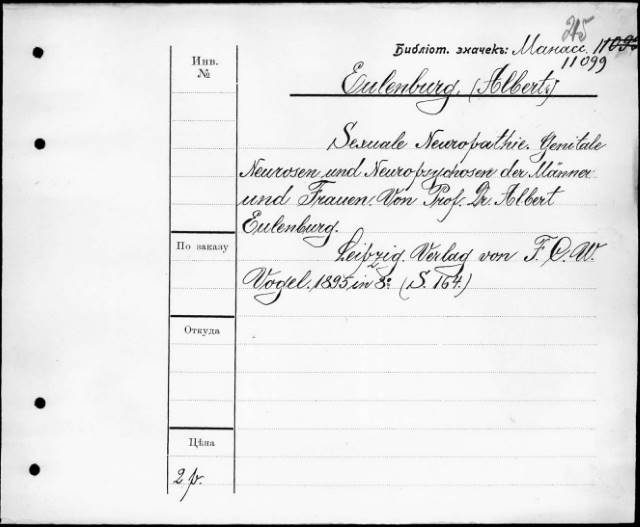 25
Библіот. значекъ: Манасс. 11099
Инв.
№
Eulenburg. (Albert)
Sexuale Neuropathie. Genitale
Neurosen und Neuropsychosen der Männer
und Frauen. Von Prof. Dr. Albert
Eulenburg.
По заказу
Leipzig. Verlag von F. C. W.
Vogel. 1895 in 8º (S. 164.)
Откуда
Цѣна
2 р.